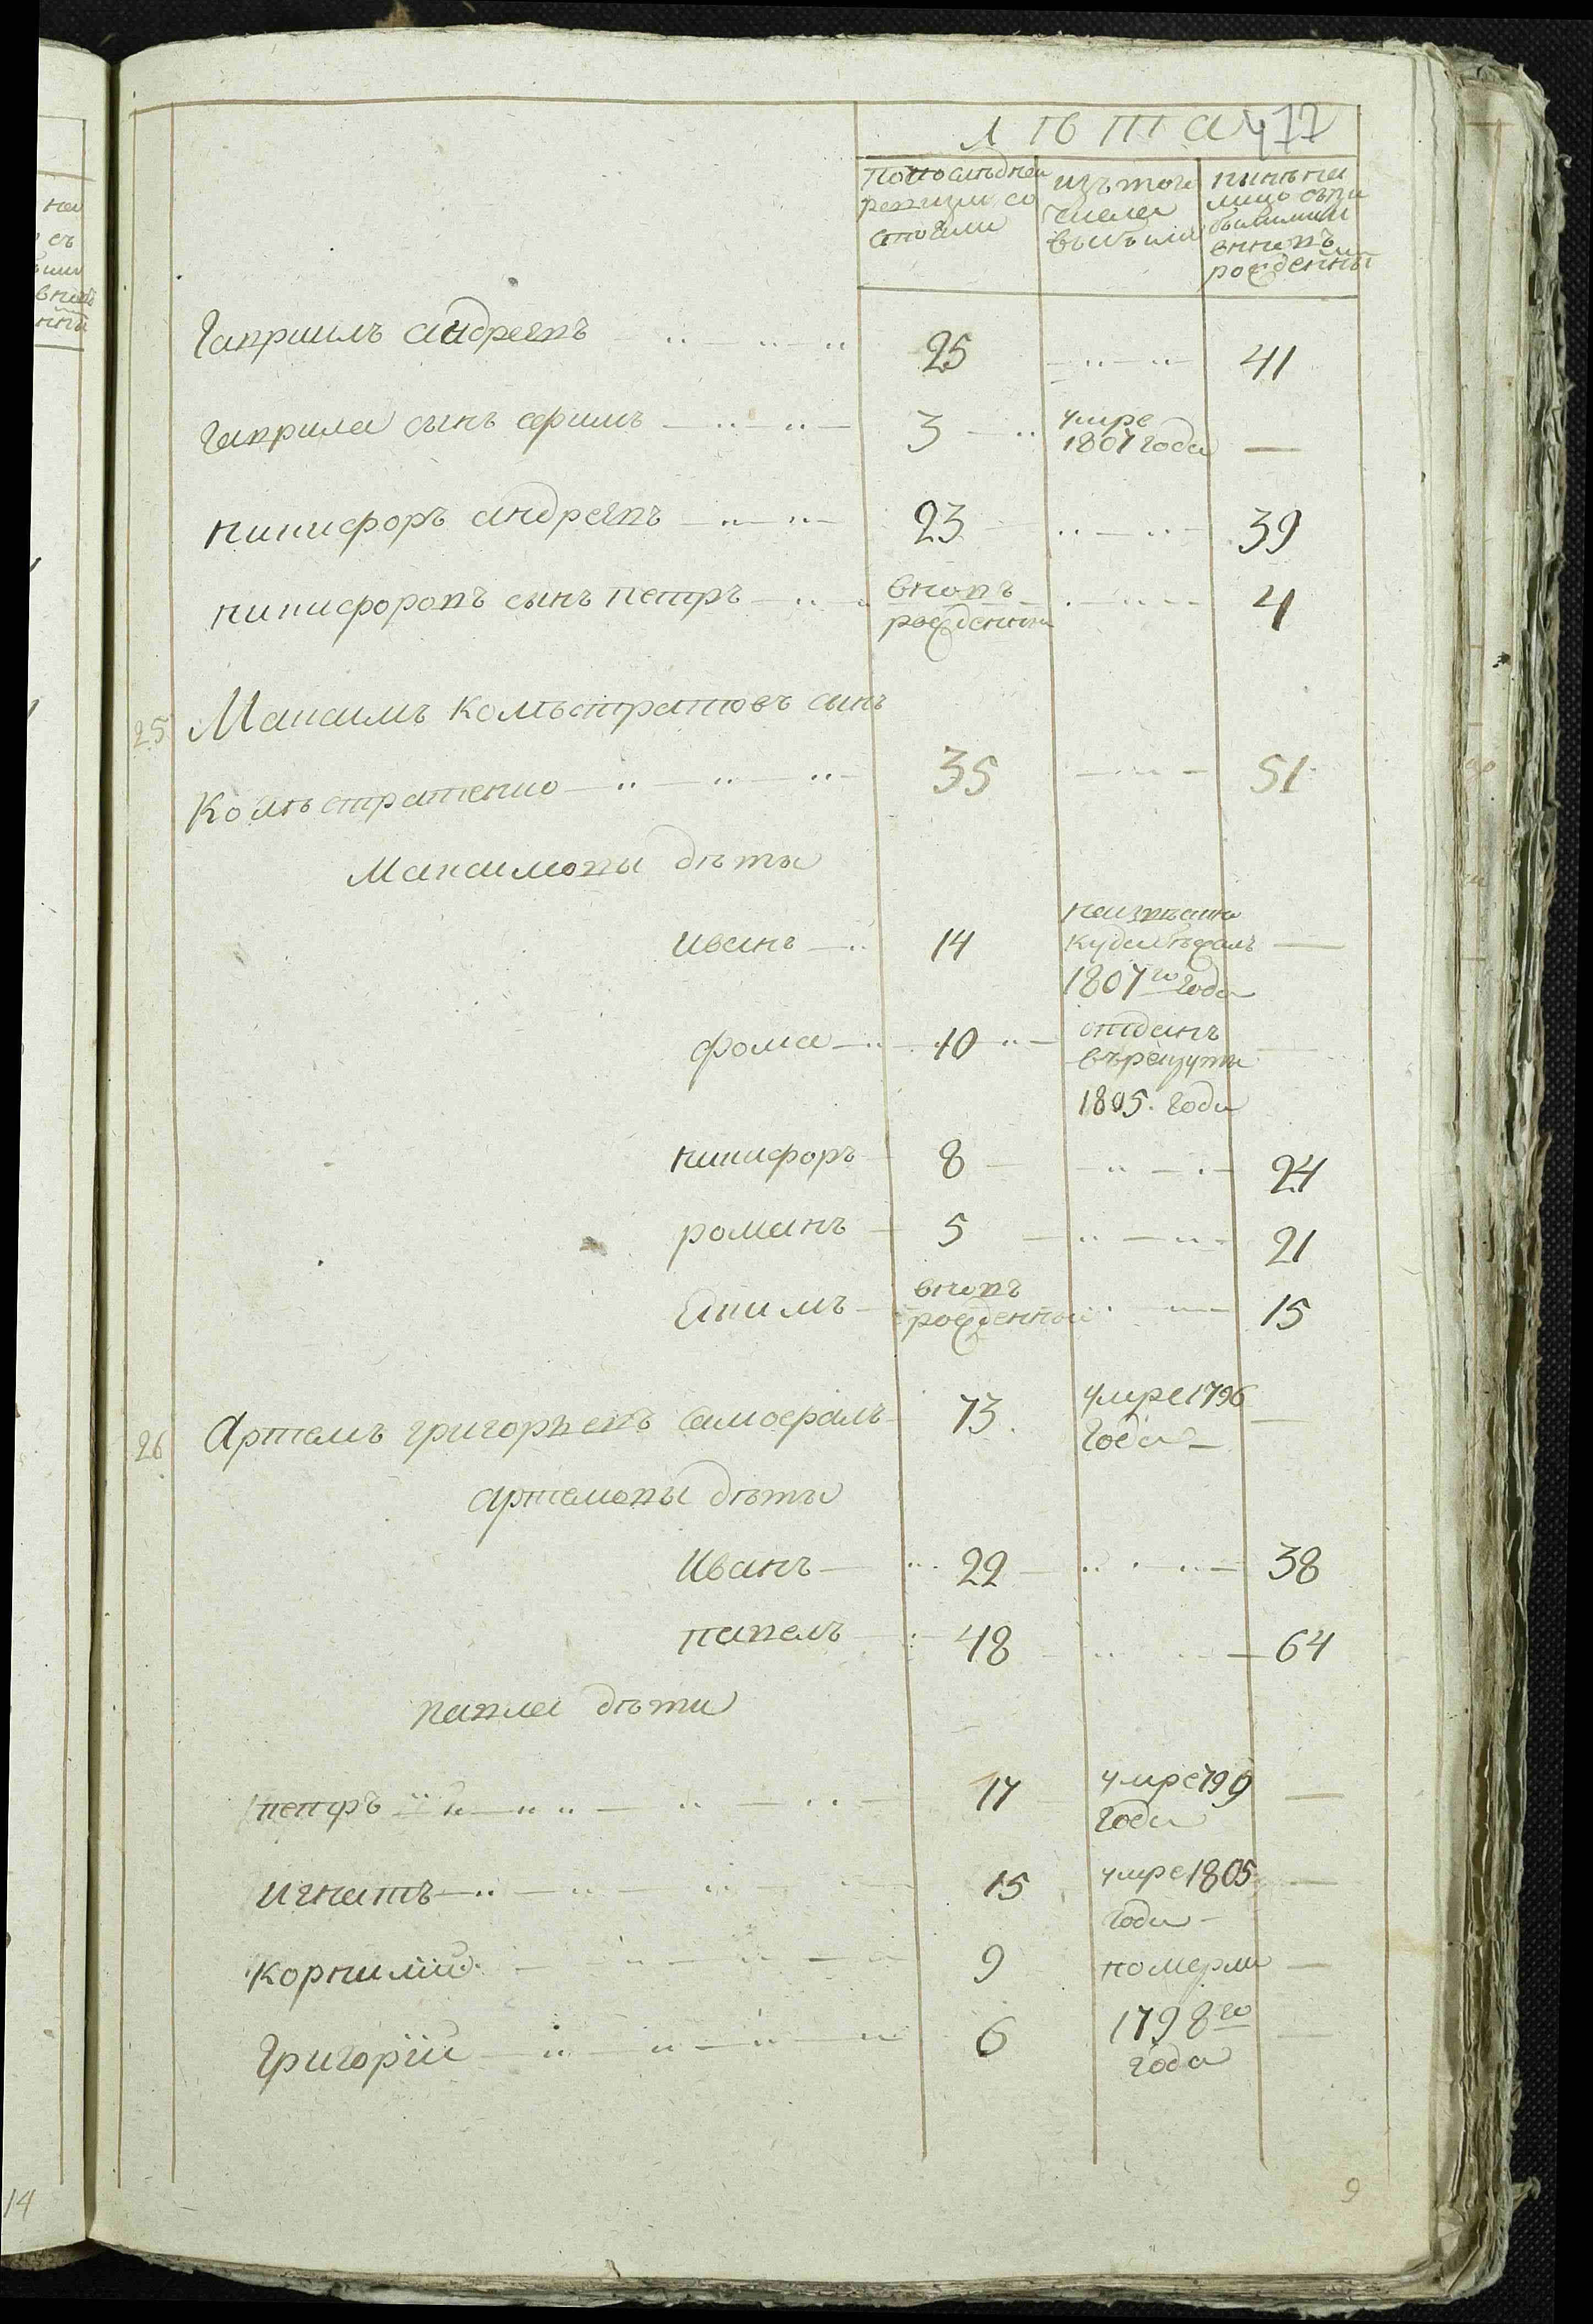 лѣта 477
по последней
ревизии со
стояли
изъ того
числа
выбыла
ныне на
лицо съпри
былыми и
вновъ
рожденны
Гавриилъ андреевъ 25 41
Гаврила сынъ ефимъ 3 умре
1807 года
никифоръ андреевъ 23 39
никифоровъ сынъ петръ вновъ
рожденны 4
25 Максимъ Комъстратовъ сынъ
Комъстратенко 35 51
Максимовы дѣти
иванъ 14 неизвѣстно
куда бѣжалъ
1807го года
фома 10 отданъ
въ рекруты
1805. года
никифоръ 8 24
романъ 5 21
Екимъ вновъ
рожденный 15
26 Артемъ григорьевъ Самоѳалъ 73. умре 1796
года
артемовы дѣти
Иванъ 22 38
павелъ 48 64
павла дѣти
петръ 17 умре 799
года
игнатъ 15 умре 1805
года
Корнилий 9 померли
Григорій 6 1798го
года
14
9